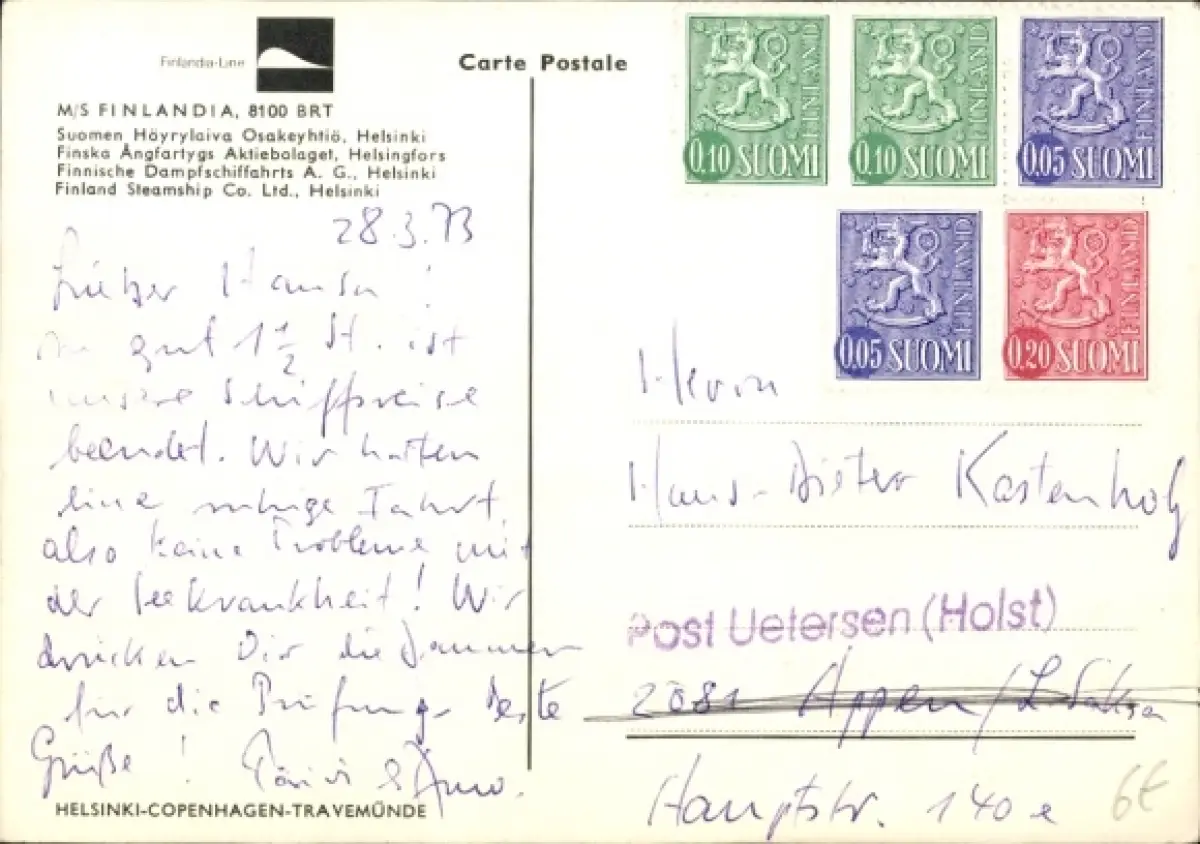 Finlandia-Line
M/S FINLANDIA, 8100 BRT
Suomen Höyrylaiva Osakeyhtiö, Helsinki
Finska Ångfartygs Aktiebolaget, Helsingfors
Finnische Dampfschiffahrts A. G., Helsinki
Finland Steamship Co. Ltd., Helsinki
28.3.73
Lieber
gut 1 1/2 St. ist
unsere Schiffsreise
beendet. Wir hatten
eine ruhige Fahrt,
also keine Probleme mit
der Seekrankheit! Wir
drücken Dir die Daumen
für die Prüfung. Beste
Grüße!
HELSINKI-COPENHAGEN-TRAVEMÜNDE
Carte Postale
0,10 SUOMI FINLAND
0,10 SUOMI FINLAND
0,05 SUOMI FINLAND
0,05 SUOMI FINLAND
0,20 SUOMI FINLAND
Herrn
Hans-Dieter Kastenholz
Post Uetersen (Holst)
2081 Appen/
Hauptstr. 140 e
6€